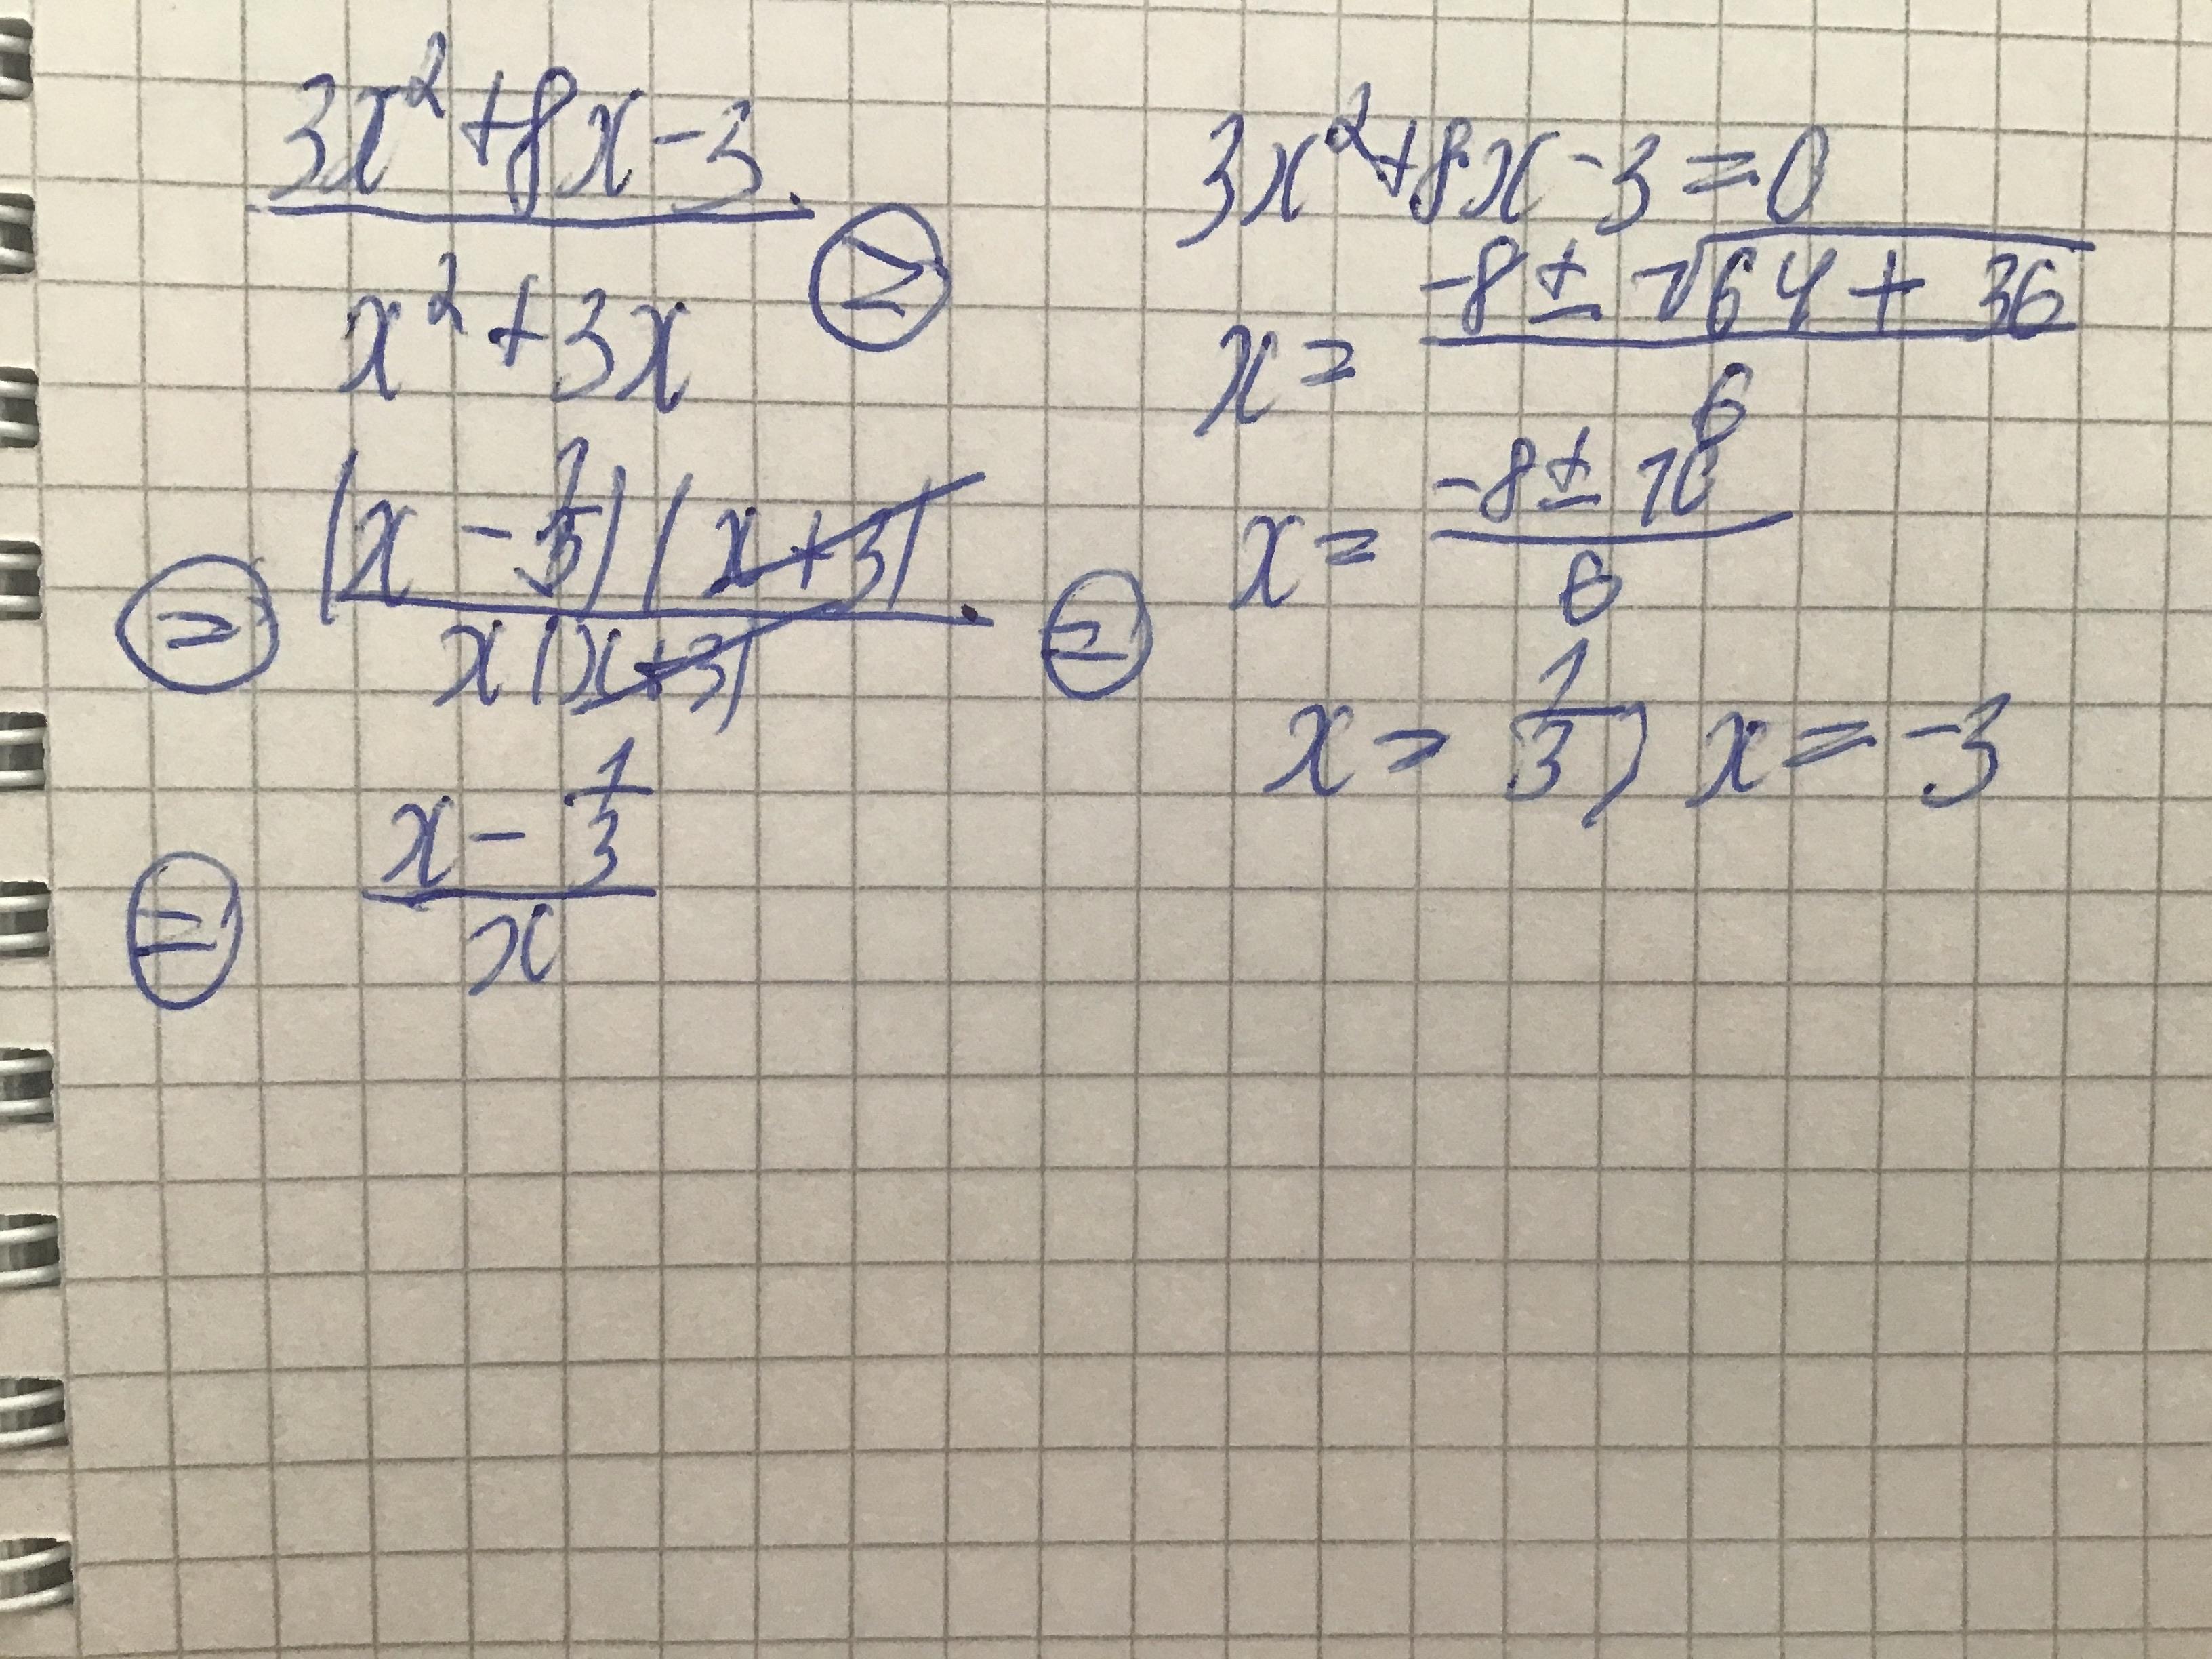 3x² + 8x - 3
x² + 3x
=
= (x - 1/3)(x + 3)
x(x + 3)
=
= x - 1/3
x
3x² + 8x - 3 = 0
x = -8 ± √64 + 36
6
x = -8 ± 10
6
x = 1/3, x = -3